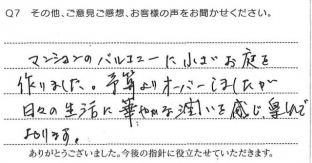 Q7 その他、ご意見ご感想、お客様の声をお聞かせください。
マンションのバルコニーに小さなお庭を
作りました。予算よりオーバーしましたが
日々の生活に華やかな潤いを感じ、喜んで
おります。
ありがとうございました。今後の指針に役立たせていただきます。